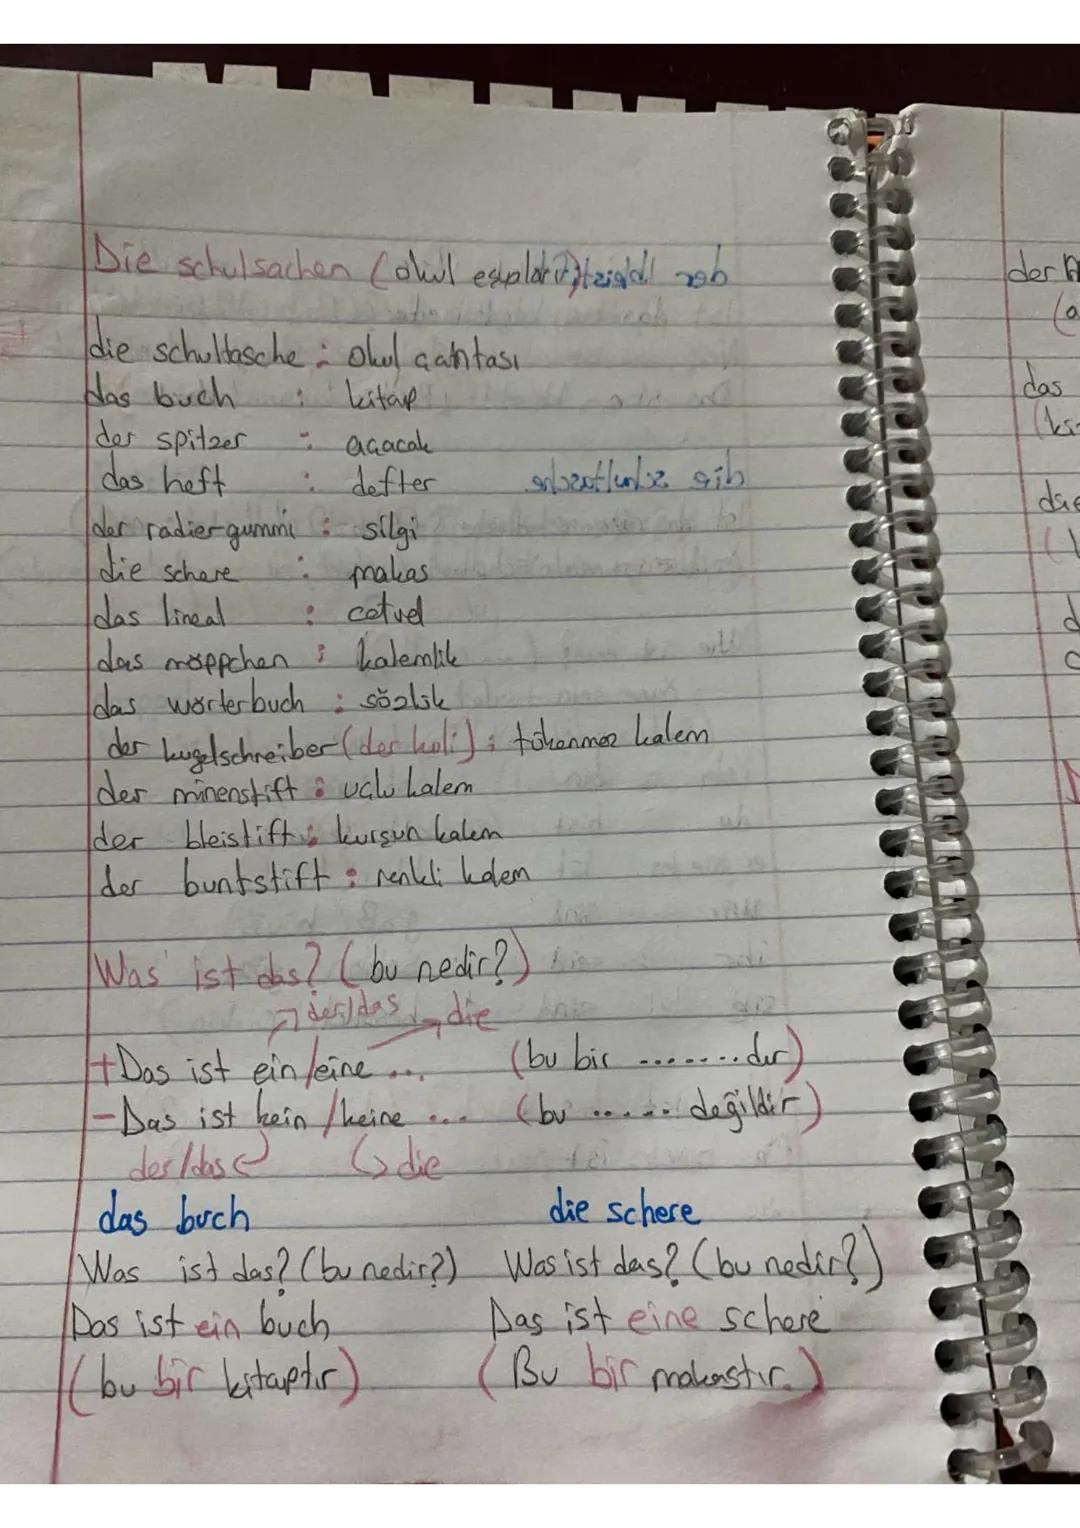 Die schulsachen (okul eşyaları)
die schultasche : okul çantası
das buch : kitap
der spitzer : açacak
das heft : defter
der radiergummi : silgi
die schere : makas
das lineal : cetvel
das mäppchen : kalemlik
das wörterbuch : sözlük
der kugelschreiber (der kuli) : tükenmez kalem
der minenstift : uçlu kalem
der bleistift : kurşun kalem
der buntstift : renkli kalem
Was ist das? (bu nedir?)
der/das die
+ Das ist ein/eine ... (bu bir ........dır)
- Das ist kein/keine ... (bu ...... değildir)
der/das die
das buch die schere
Was ist das? (bu nedir?) Was ist das? (bu nedir?)
Das ist ein buch Das ist eine schere
(bu bir kitaptır) (Bu bir makastır.)
das